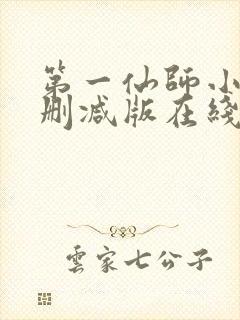 第一仙師小
删减版在綫
雲家七公子